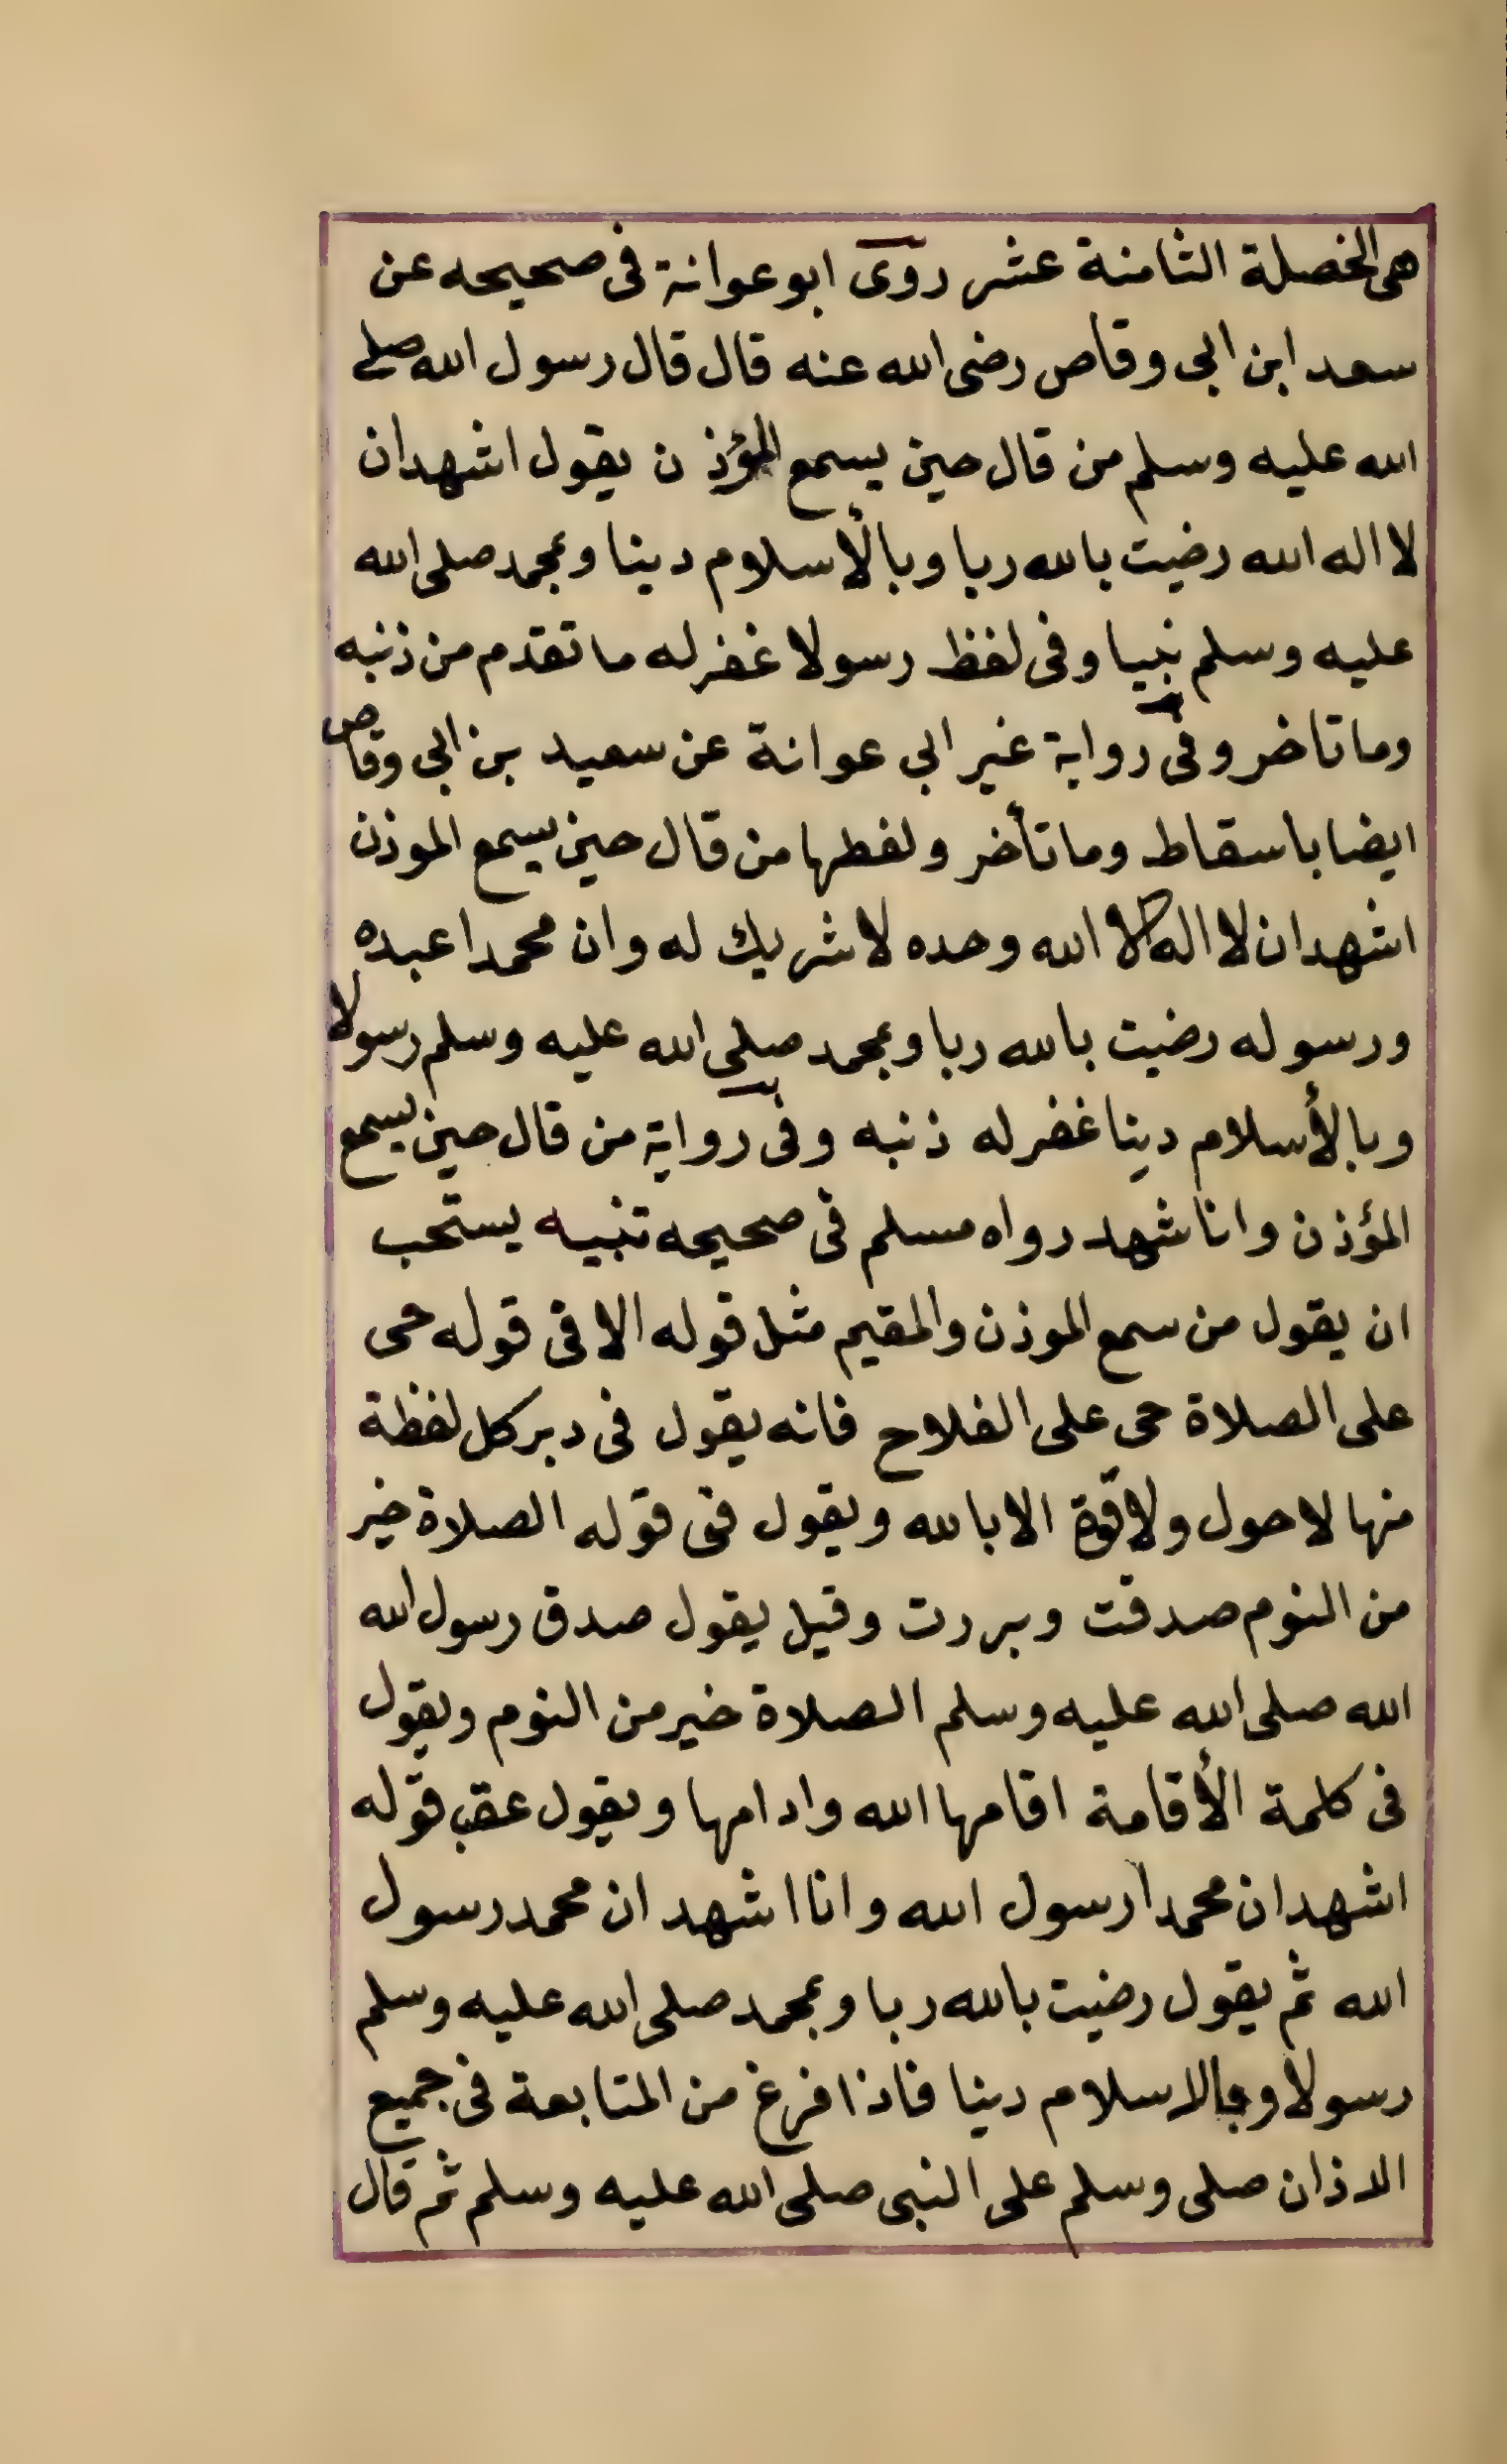 هى الخصلة الثامنة عشر روى ابو عوانة فى صحيحه عن
سعد ابن ابى وقاص رضى الله عنه قال قال رسول الله صلى
الله عليه وسلم من قال حين يسمع المؤذن يقول اشهد ان
لا اله الله رضيت بالله ربا وبالأسلام دينا وبمحمد صلى الله
عليه وسلم نبيا وفى لفظ رسولا غفر له ما تقدم من ذنبه
وما تاخر وفى رواية غير ابى عوانة عن سعيد بن ابى وقاص
ايضا باسقاط وما تأخر ولفطها من قال حين يسمع الموذن
اشهد ان لا اله الا الله وحده لا شريك له وان محمدا عبده
ورسوله رضيت بالله ربا وبمحمد صلى الله عليه وسلم رسولا
وبالأسلام دينا غفر له ذنبه وفى رواية من قال حين يسمع
المؤذن وانا شهد رواه مسلم فى صحيحه تنبيه يستحب
ان يقول من سمع الموذن والمقيم مثل قوله الا فى قوله حى
على الصلاة حى على الفلاح فانه يقول فى دبر كل لفظة
منها لا حول ولا قوة الا بالله ويقول فى قوله الصلاة خير
من النوم صدقت وبررت وقيل يقول صدق رسول الله
الله صلى الله عليه وسلم الصلاة خير من النوم ويقول
فى كلمة الأقامة اقامها الله وادامها ويقول عقب قوله
اشهد ان محمدا رسول الله وانا اشهد ان محمد رسول
الله ثم يقول رضيت بالله ربا وبمحمد صلى الله عليه وسلم
رسولا وبالاسلام دينا فاذا فرغ من المتابعة فى جميع
الاذان صلى وسلم على النبى صلى الله عليه وسلم ثم قال